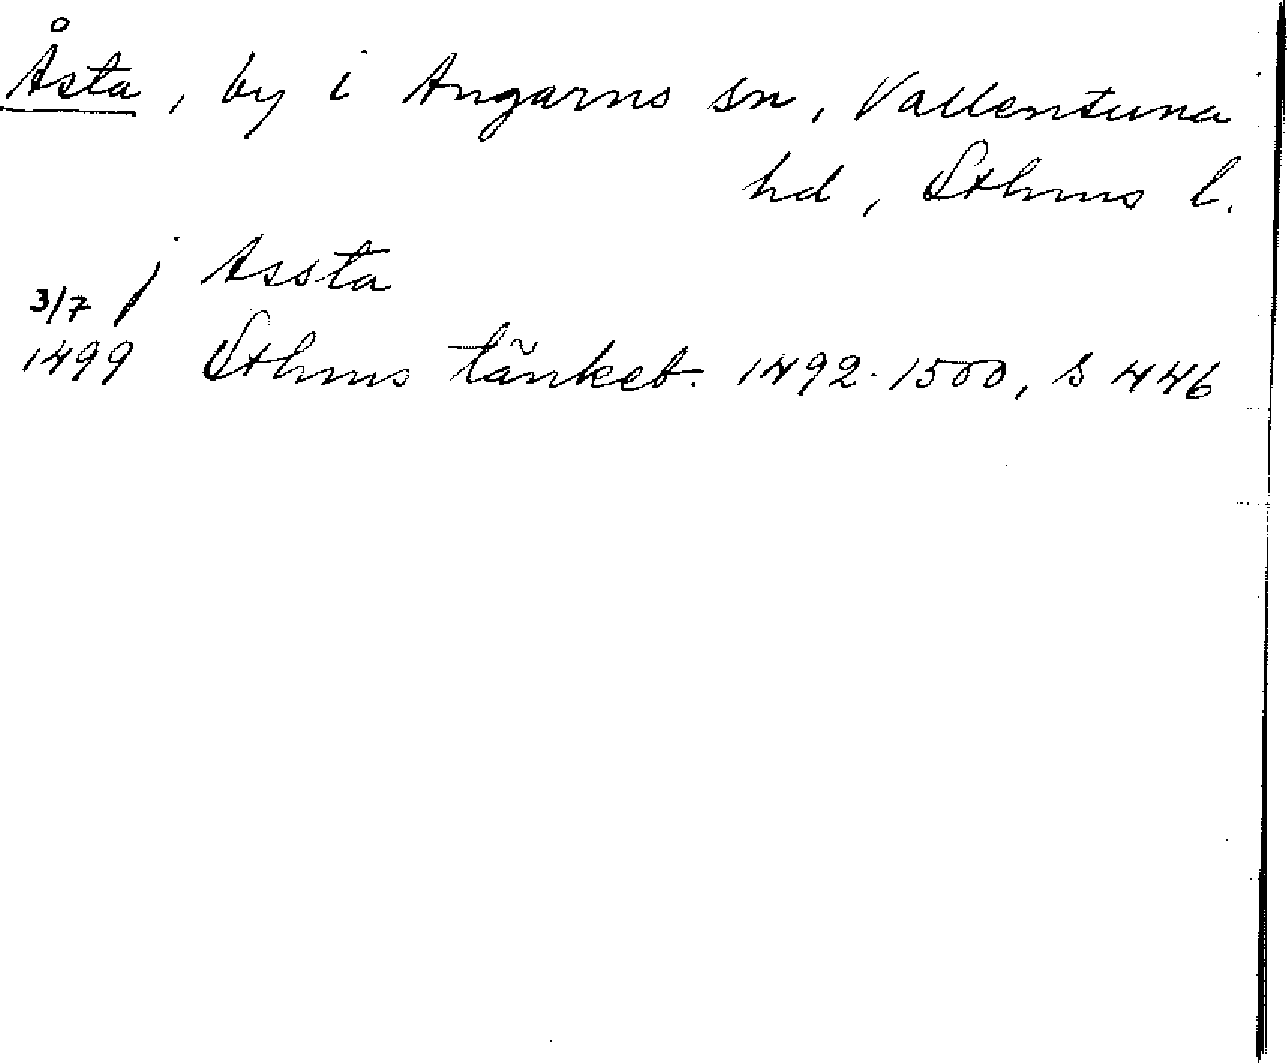 Åsta, by i Angarns sn, Vallentuna
hd, Sthms l.
j Assta
3/7
1499 Sthms tänkeb. 1492-1500, s 446